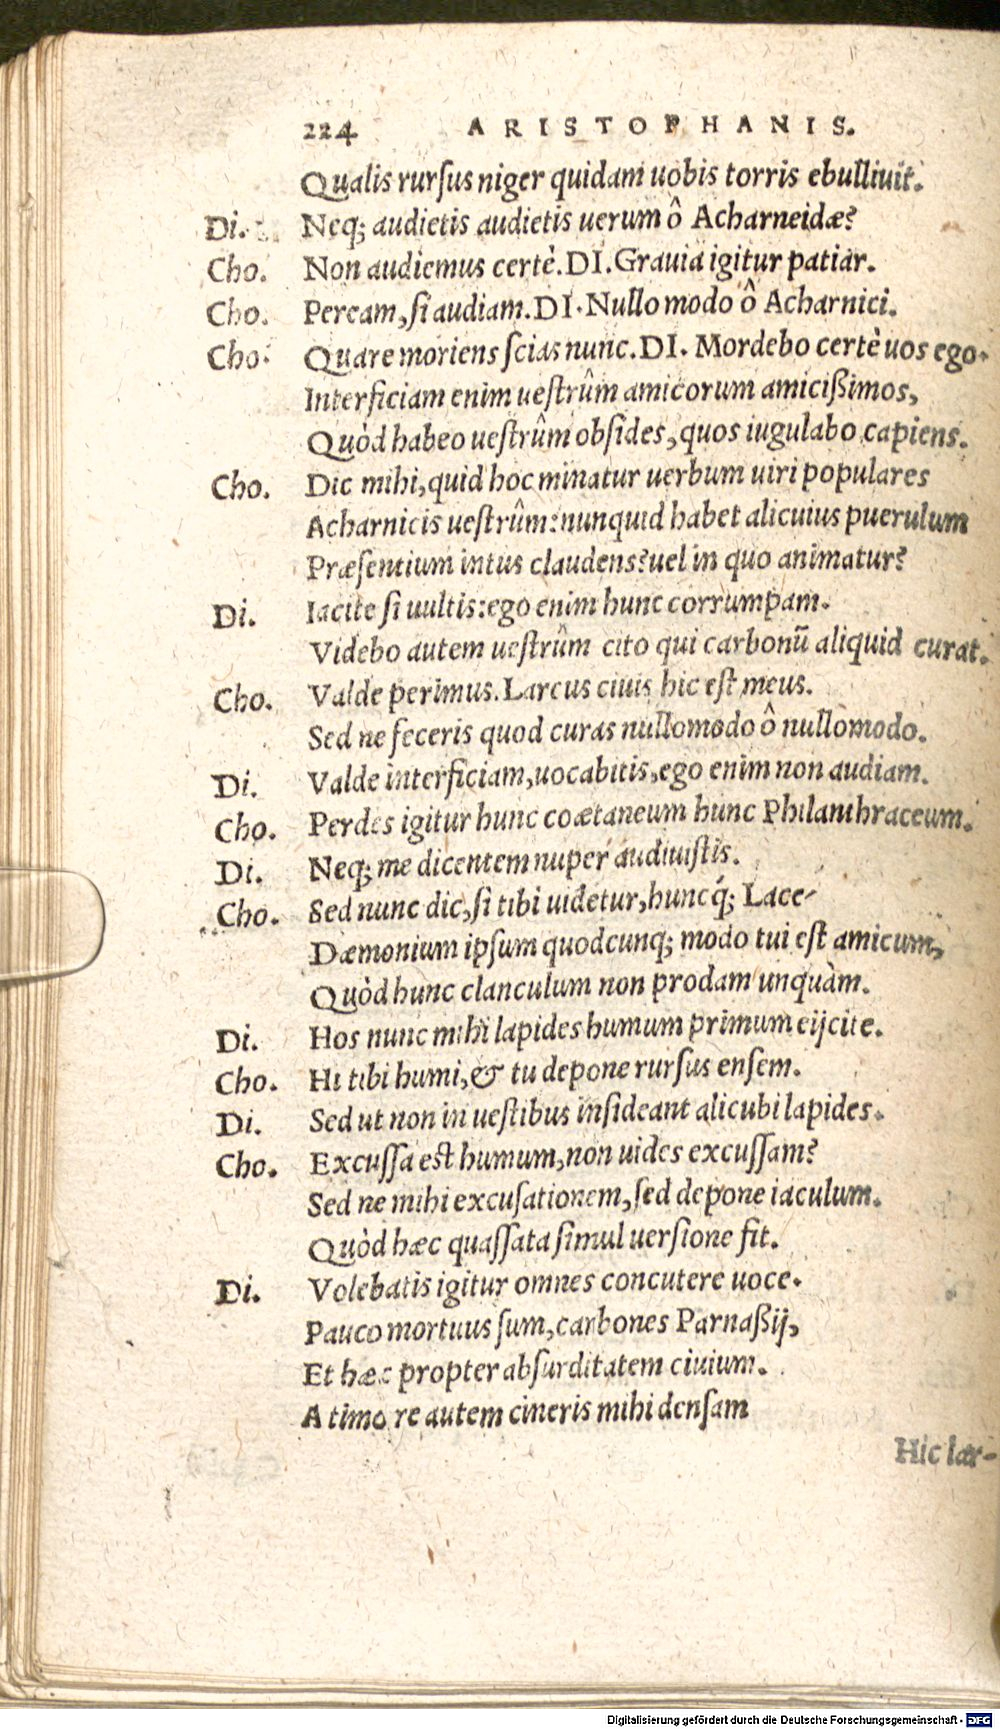 224 ARISTOPHANIS.
Qualis rurſus niger quidam uobis torris ebulliuit.
Di. Neq; audietis audietis uerum ô Acharneidæ?
Cho. Non audiemus certè. DI. Grauia igitur patiar.
Cho. Peream, ſi audiam. DI. Nullo modo ô Acharnici.
Cho. Quare moriens ſcias nunc. DI. Mordebo certè uos ego.
Interficiam enim ueſtrûm amicorum amicißimos,
Quòd habeo ueſtrûm obſides, quos iugulabo capiens.
Cho. Dic mihi, quid hoc minatur uerbum uiri populares
Acharnicis ueſtrûm: nunquid habet alicuius puerulum
Præſentium intus claudens? uel in quo animatur?
Di. Iacite ſi uultis: ego enim hunc corrumpam.
Videbo autem ueſtrûm cito qui carbonũ aliquid curat.
Cho. Valde perimus. Larcus ciuis hic eſt meus.
Sed ne feceris quod curas nullomodo ô nullomodo.
Di. Valde interficiam, uocabitis, ego enim non audiam.
Cho. Perdes igitur hunc coætaneum hunc Philanthraceum.
Di. Neq; me dicentem nuper audiuiſtis.
Cho. Sed nunc dic, ſi tibi uidetur, hunc q́; Lace-
Dæmonium ipſum quodcunq; modo tui eſt amicum,
Quòd hunc clanculum non prodam unquàm.
Di. Hos nunc mihi lapides humum primum eijcite.
Cho. Hi tibi humi, & tu depone rurſus enſem.
Di. Sed ut non in ueſtibus inſideant alicubi lapides.
Cho. Excuſſa eſt humum, non uides excuſſam?
Sed ne mihi excuſationem, ſed depone iaculum.
Quòd hæc quaſſata ſimul uerſione fit.
Di. Volebatis igitur omnes concutere uoce.
Pauco mortuus ſum, carbones Parnaßij,
Et hæc propter abſurditatem ciuium.
A timore autem cineris mihi denſam
Hic lar-
Digitalisierung gefördert durch die Deutsche Forschungsgemeinschaft - DFG